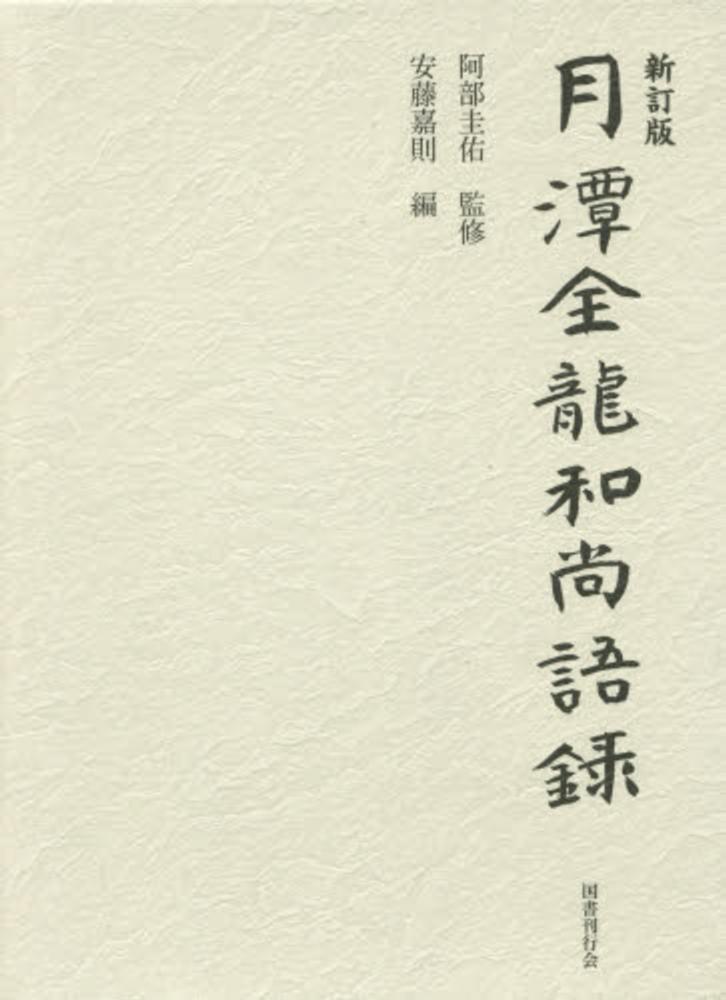 新訂版
月潭全龍和尚語録
阿部圭佑　監修
安藤嘉則　編
国書刊行会